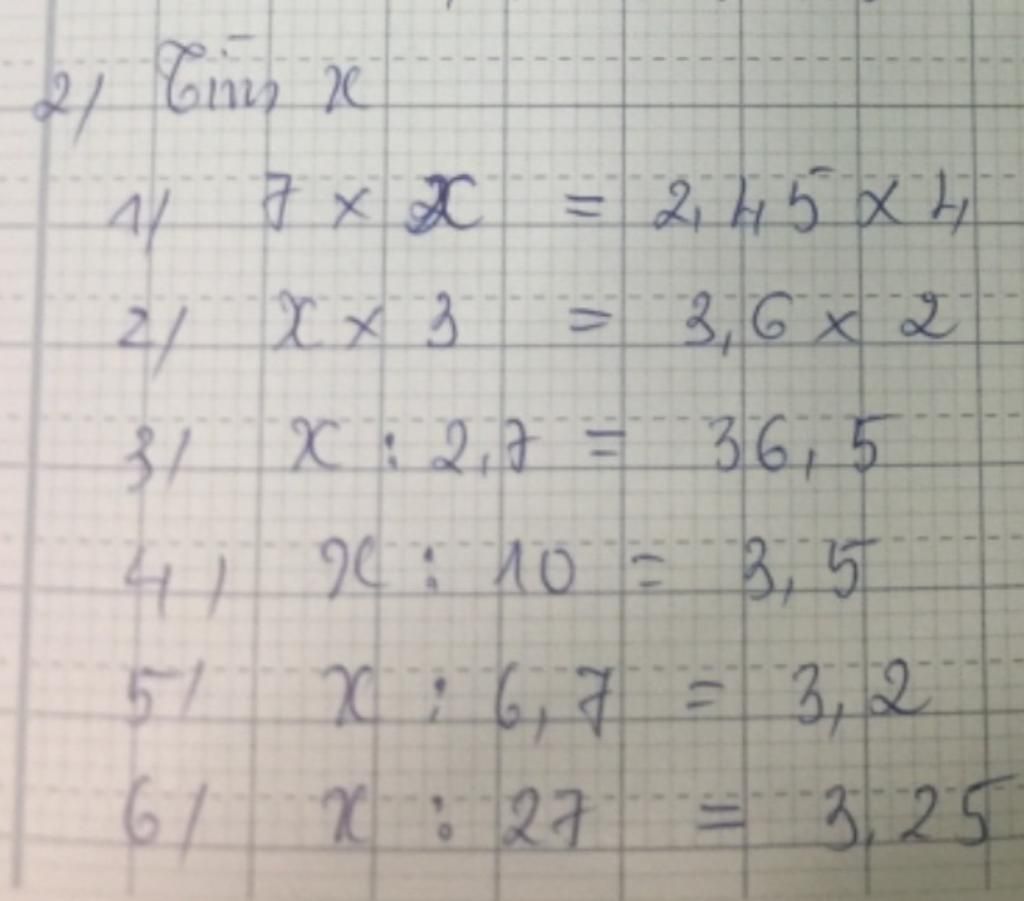 2/ Tìm x
1/ 7 × x = 2,45 × 4
2/ x × 3 = 3,6 × 2
3/ x : 2,7 = 36,5
4/ x : 10 = 3,5
5/ x : 6,7 = 3,2
6/ x : 27 = 3,25